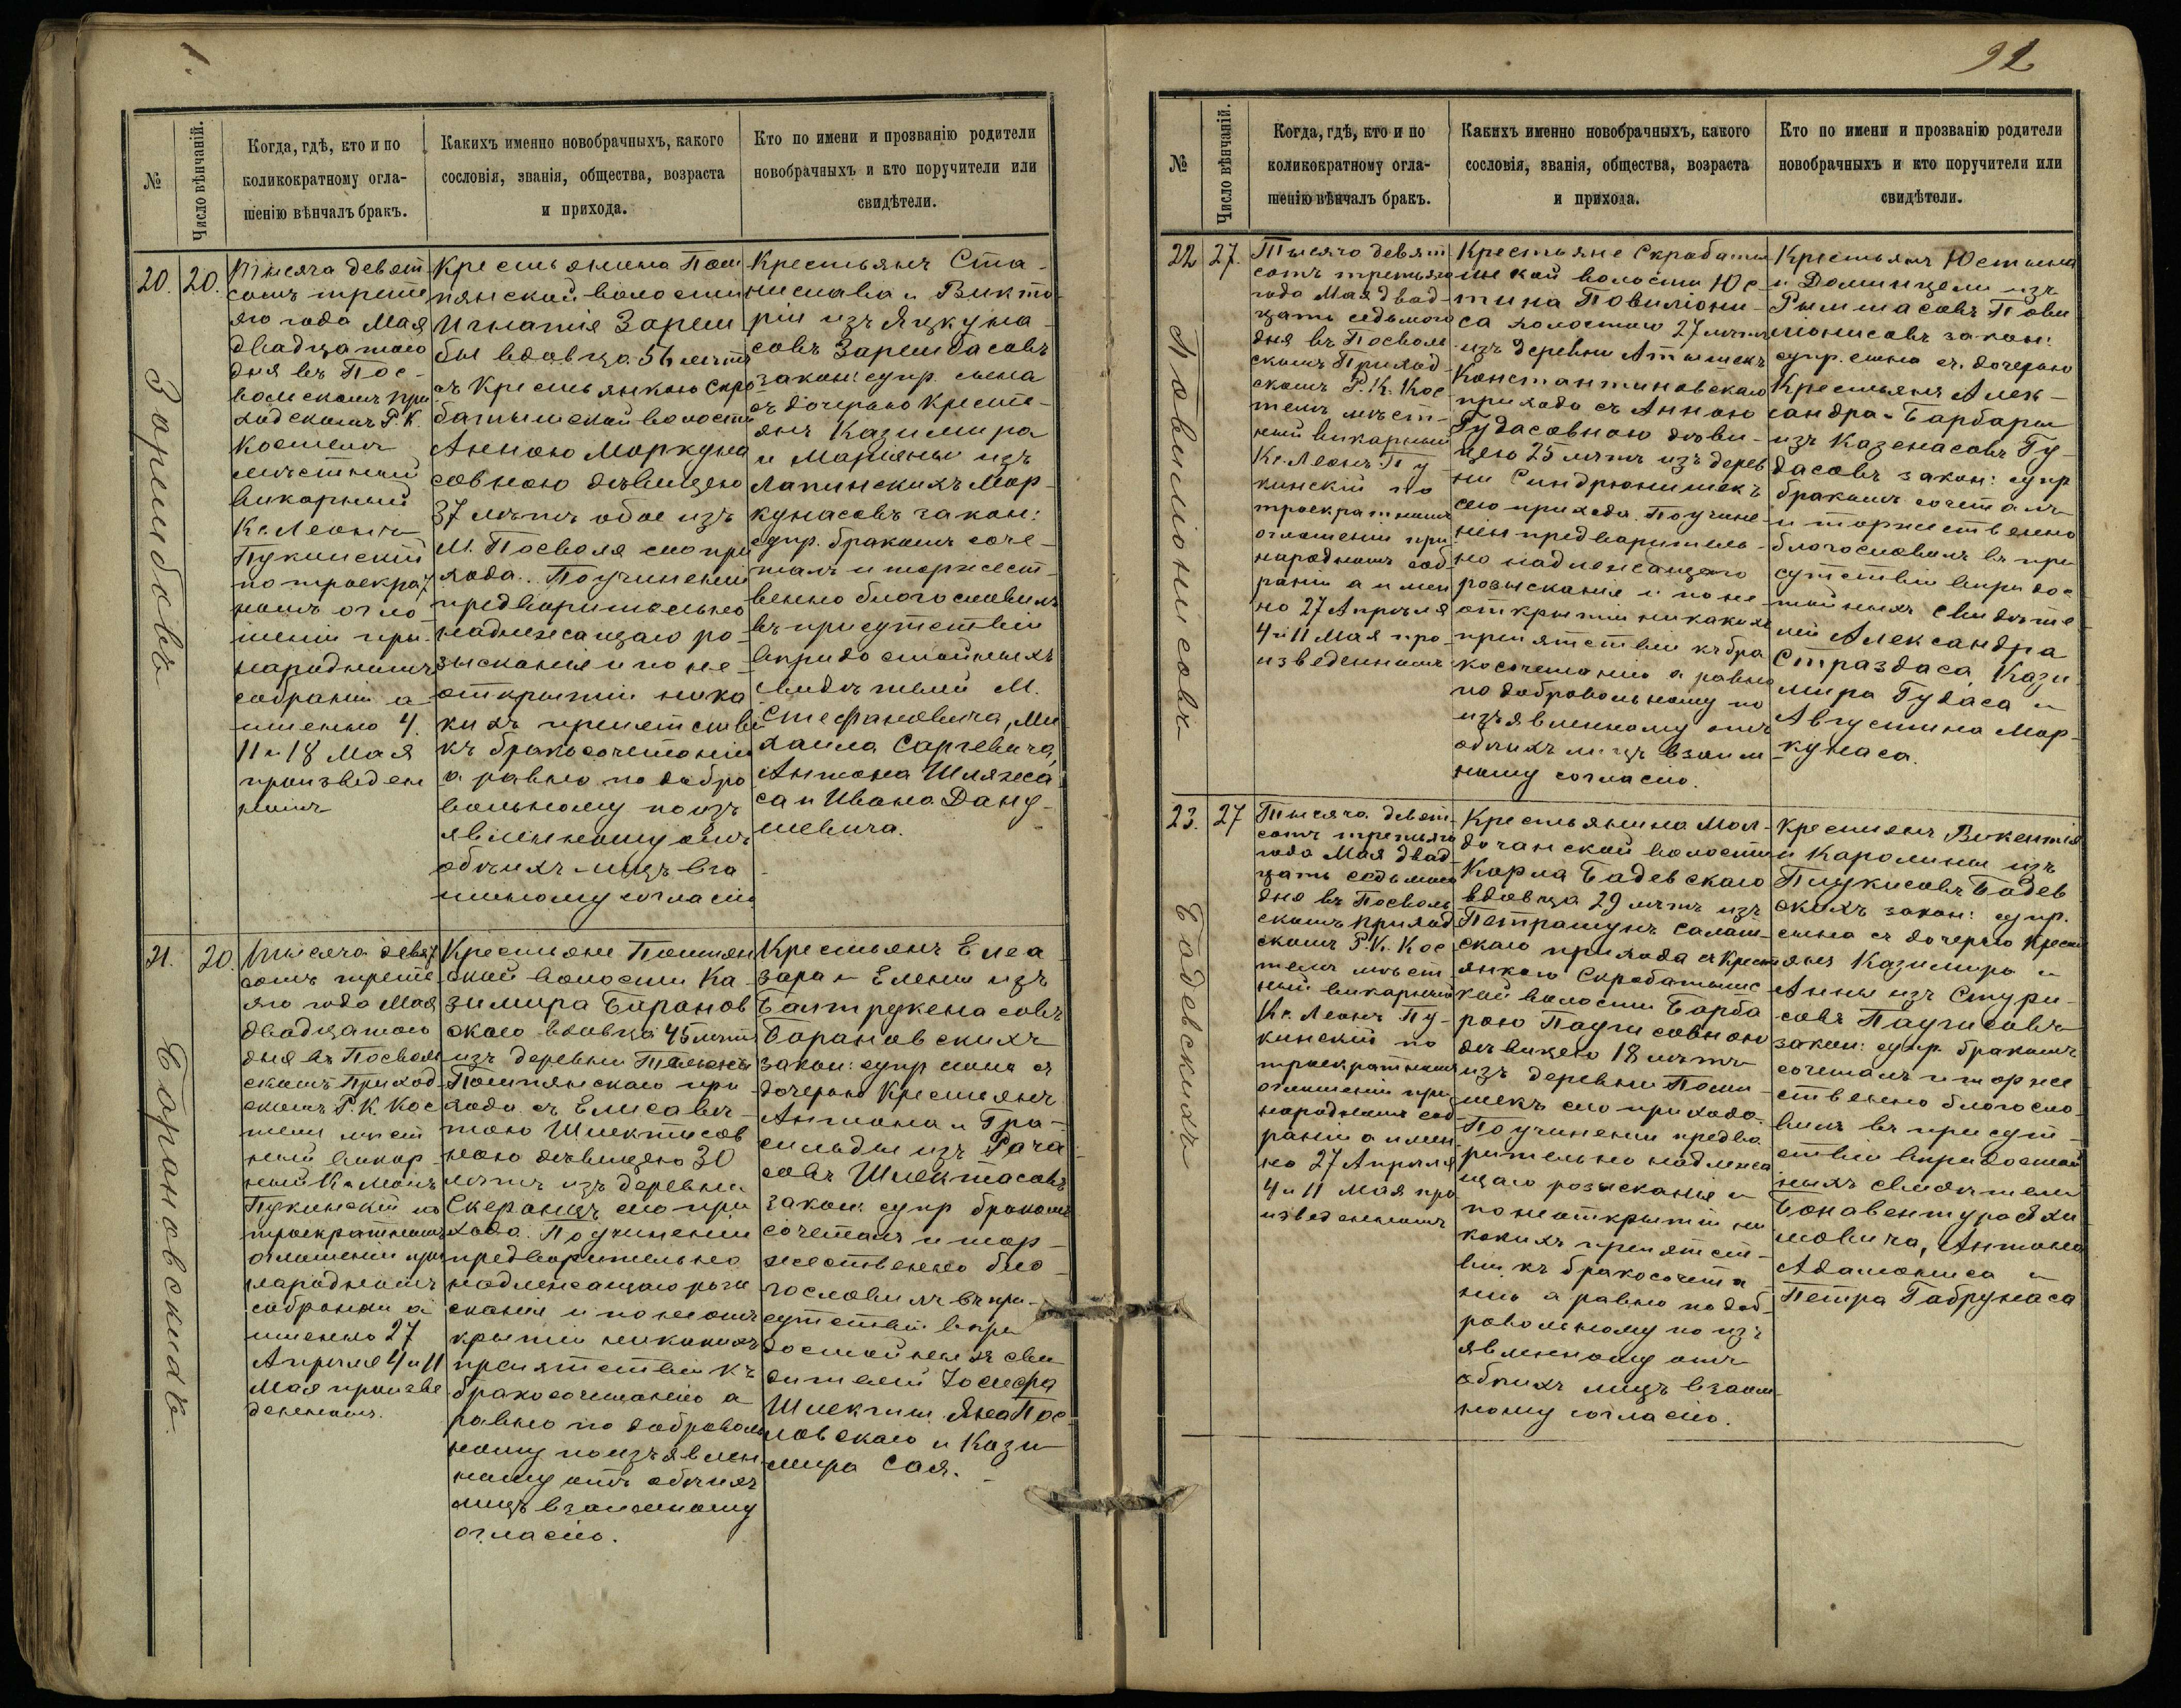 1.
№
Число вѣнчаній.
Когда, гдѣ, кто и по
коликократному огла-
шенію вѣнчалъ бракъ.
Каких­ъ именно новобрачныхъ, какого
сословія, званія, общества, возраста
и прихода.
Кто по имени и прозванію родители
новобрачныхъ и кто поручители или
свидѣтели.
20.
20.
Зорембовъ
Тысяча девят
сотъ треть
яго года Мая
двадцатаго
дня въ Пос-
вольскомъ при
ходскомъ Р. К.
Костелѣ
мѣстный
викарный
Кс. Леонъ
Пукинскій
по троекрат
номъ огло
шеніи при
народномъ
собраніи а
именно 4.
11 и 18 Мая
произведен
номъ
Крестьянина Пом
пянской волости
Игнатія Зарем
бы вдовца 56 лѣтъ
съ Крестьянкою Скро
батышской волости
Анною Моркуна
совною дѣвицею
37 лѣтъ обое изъ
М. Посволя сего при
хода. По учиненіи
предварительно
надлежащаго ро-
зысканія и по не-
открытіи ника
кихъ препятствій
къ бракосочетанію
а равно по добро
вольному по изъ
явленному отъ
обоихъ лицъ вза
имному согласію
Крестьянъ Ста-
нислава и Викто
ріи изъ Яцкуна-
совъ Зарембасовъ
закон: супр. сына
съ дочерью Кресть-
янъ Казимира
и Маріяны изъ
Лапинскихъ Мор-
кунасовъ закон:
супр. бракомъ соче-
талъ и торжест-
венно благословилъ
въ присутствіи
вѣридостойныхъ
свидѣтелей М.
Стефановича, Ми
хаила Саргевича,
Антона Шляжа
са и Ивана Дану-
шевича.
21.
20.
Борановскихъ
Тысяча девят
сотъ треть
яго года Мая
двадцатаго
дня въ Посволь
скомъ Приход
скомъ Р. К. Кос
телѣ мѣст
ный викар-
ный Кс Леонъ
Пукинскій по
троекратномъ
оглашеніи при
народномъ
собраніи а
именно 27
Апрѣля 4 и 11
Мая произве
денномъ.
Крестьяне Помпян
ской волости Ка-
зимира Боранов
скаго вдовца 45 лѣтъ
изъ деревни
Помпянскаго при
хода съ Елисаве-
тою Шлектисов
ною дѣвицею 30
лѣтъ изъ деревни
сего при
хода. По учиненіи
предварительно
надлежащаго розы
сканія и по неот
крытіи никакихъ
препятствій къ
бракосочетанію а
равно по доброволь
ному по изъявлен
ному отъ обоихъ
лицъ взаимному
огласію.
Крестьянъ Елеа
зара и Елены изъ
Балтружена совъ
Борановскихъ
закон: супр сына съ
дочерью Крестьянъ
Антона и Гра-
сильды изъ Рача
совъ Шлектасовъ
закон: супр бракомъ
сочеталъ и тор-
жественно бла-
гословилъ въ при-
сутствіи вѣри
достойныхъ сви
дителей Іосифа
Яна Пос
ловскаго и Кази
мира Сая.
92
№
Число вѣнчаній.
Когда, гдѣ, кто и по
коликократному огла-
шенію вѣнчалъ бракъ.
Какихъ именно новобрачныхъ, какого
сословія, званія, общества, возраста
и прихода.
Кто по имени и прозванію родители
новобрачныхъ и кто поручители или
свидѣтели.
22
27.
Повиліонисовъ
Тысячо девят
сотъ третьяго
года Мая двад-
цать седьмого
дня въ Посволь
скомъ Приход-
скомъ Р. К. Кос
телѣ мѣст-
ный викарный
Кс. Леонъ Пу
кинскій по
троекратномъ
оглашеніи при
народномъ соб
раніи а имен
но 27 Апрѣля
4 и 11 Мая про
изведенномъ
Крестьяне Скробатыш
ской волости Юс
тина Повиліони-
са холостого 27 лѣтъ
изъ деревни Атышекъ
Константиновскаго
прихода съ Анною
Гудасовною дѣви-
цею 25 лѣтъ изъ дерев
ни Синдрюнишекъ
сего прихода. По учине
ніи предваритель-
но надлежащаго
розысканія и по не
открытіи никакихъ
препятствій къ бра
косочетанію а равно
по добровольному по
изъявленному отъ
обоихъ лицъ взаим
ному согласію.
Крестьянъ Юстына
и Доминцели изъ
Рымшасовъ Пови
ліонисовъ закон:
супр. сына съ дочерью
Крестьянъ Алек-
сандра и Барбары
изъ Казенасовъ Гу-
дасовъ закон: супр
бракомъ сочеталъ
и торжественно
благословилъ въ при
сутствіи вѣридос
тойныхъ свидѣте
лей Александра
Страздаса, Кази
мира Гудаса и
Августина Мор-
кунаса.
23.
27
Бадевскихъ
Тысяча девят
сотъ третьяго
года Мая двад
цать седьмого
дня въ Посволь
скомъ приход
скомъ Р. К. Кос
телѣ мѣст
ный викарный
Кс. Леонъ Пу-
кинскій по
троекратномъ
оглашеніи при
народномъ соб
раніи а имен
но 27 Апрѣля
4 и 11 Мая про
изведенномъ
Крестьянина Мол-
дочанской волости
Карла Бадевскаго
вдовца 29 лѣтъ изъ
Петрашунъ Салат-
скаго прихода съ Крест
янкою Скробатышс
кой волости Барба
рою Паугисовною
дѣвицею 18 лѣтъ
изъ деревни
сего прихода.
По учиненіи предва
рительно надлежа
щаго розысканія и
по неоткрытіи ни
какихъ препятст-
вій къ бракосочета
нію а равно по доб-
ровольному по изъ
явленному отъ
обоихъ лицъ взаим
ному согласію.
Крестянъ Викентія
и Каролины изъ
Плукисовъ Бадев
скихъ закон: супр.
сына съ дочерью Крест
янъ Казимира и
Анны изъ Стури-
совъ Паугисовъ
закон: супр. бракомъ
сочеталъ и торже
ственно благосло-
вилъ въ присут-
ствіи вѣридостой
ныхъ свидѣтели
Бонавентура Яхи
мовича, Антона
Адамониса и
Петра Габрунаса